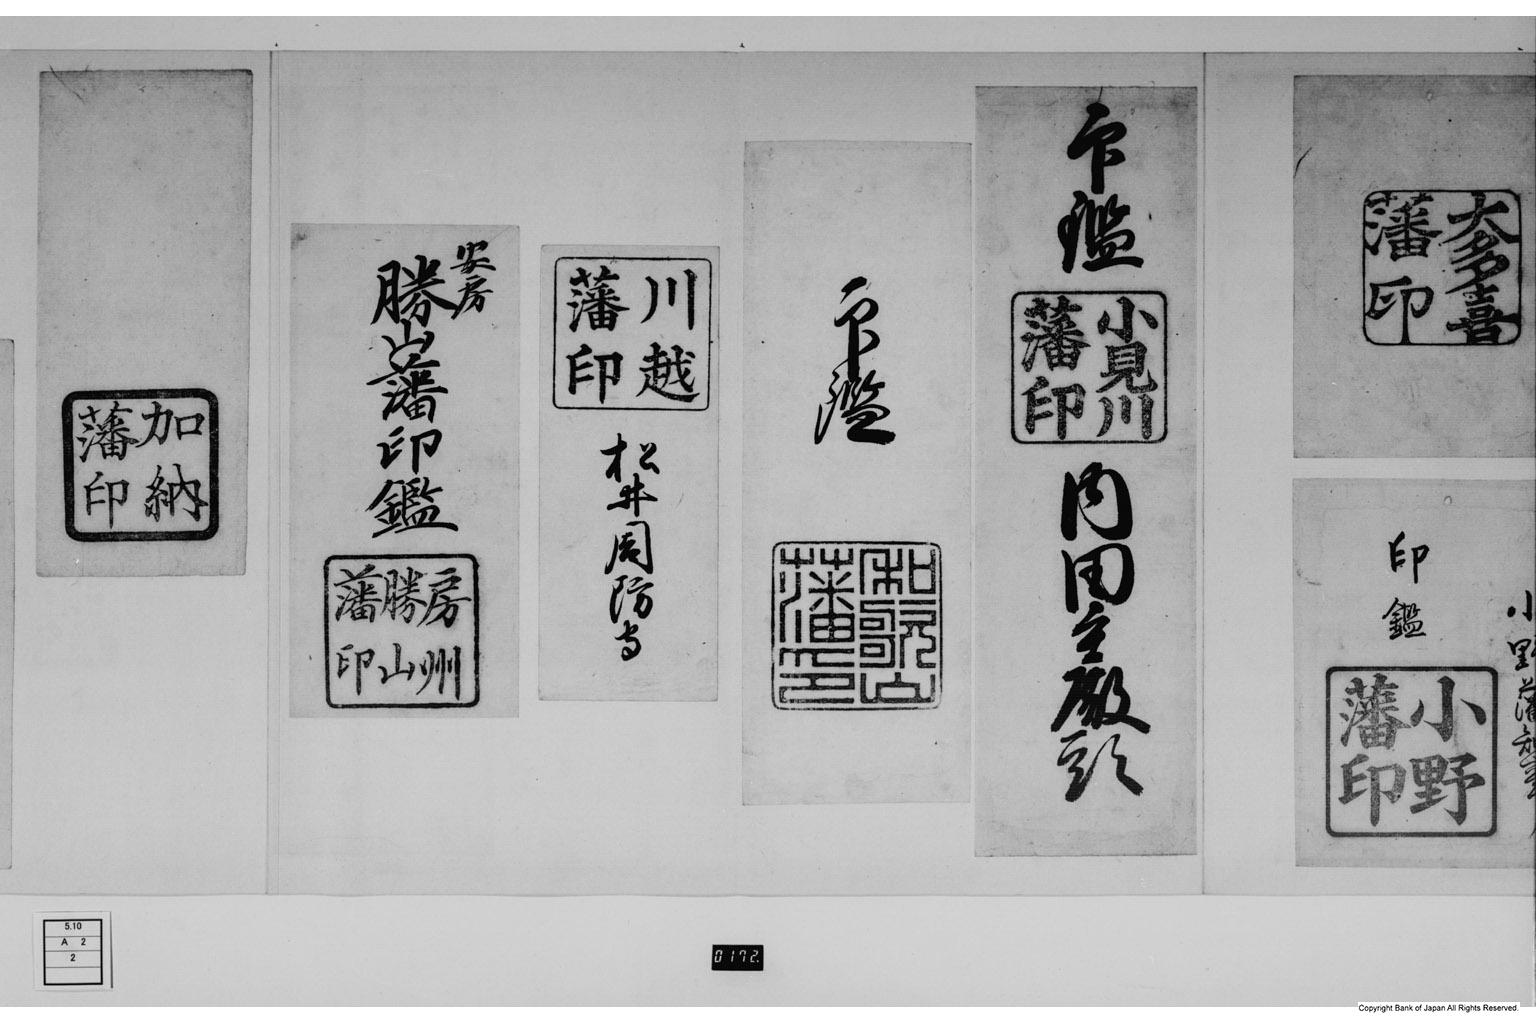 大多喜
藩印
印
鑑
小野
藩印
印鑑
小見川
藩印
内田主殿頭
印鑑
和歌山
藩印
川越
藩印
松井周防守
安房
勝山藩印鑑
房州
勝山
藩印
加納
藩印
5.10
A 2
2
0172.
Copyright Bank of Japan All Rights Reserved.